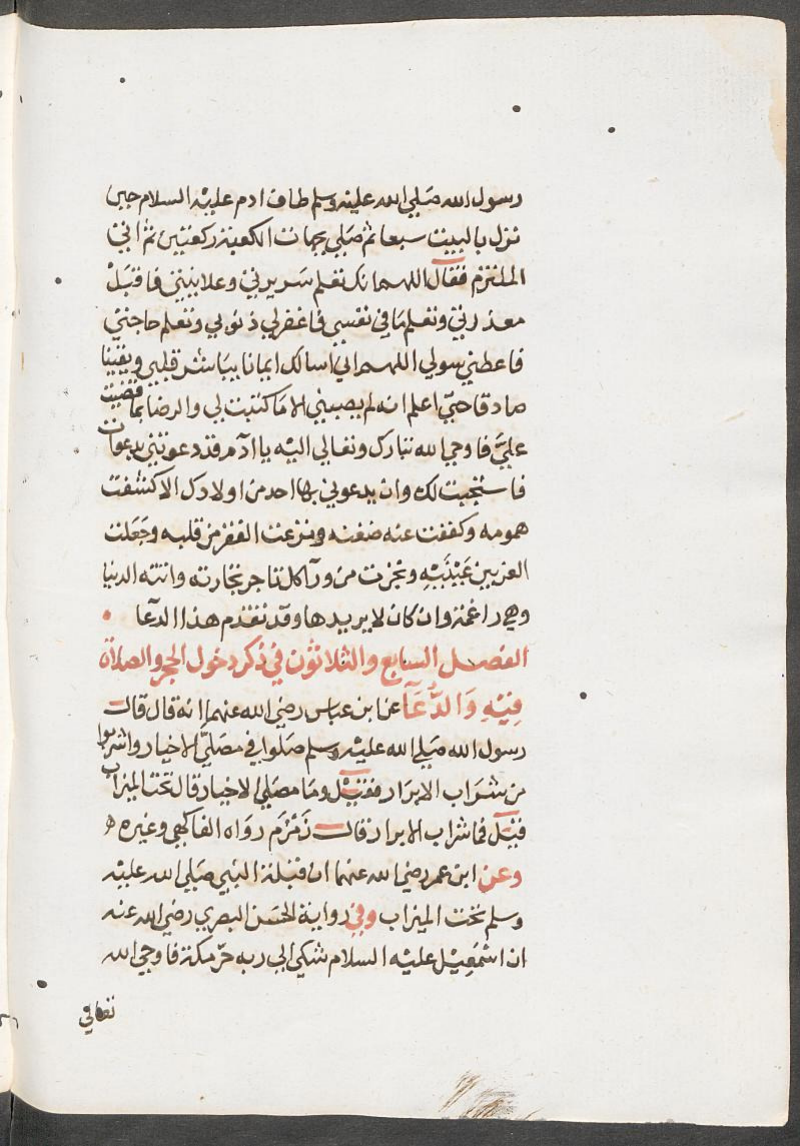 رسول الله صلي الله عليه وسلم طاف ادم عليه السلام حين
نزل بالبيت سبعا ثم صلي بجهات الكعبة ركعتين ثم اتي
الملتزم فقال اللهم انك تعلم سريرتي وعلانيتي فاقبل
معذرتي وتعلم ما في نفسي فاغفر لي ذنوبي وتعلم حاجتي
فاعطني سولي اللهم اني اسالك ايمانا يباشر قلبي ويقينا
صادقا حتي اعلم انه لم يصبني الا ما كتبت لي والرضا بما قضيت
علي فاوحي الله تبارك وتعالي اليه يا ادم قد دعوتني بدعوات
فاستجبت لك وان يدعوني بها احد من اولادك الا كشفت
همومه وكففت عنه ضعفه ونزعت الفقر من قلبه وجعلت
العز بين عينيه وتجرت من ورآ كل تاجر تجارته واتته الدنيا
وهي راغمة وان كان لا يريدها وقد تقدم هذا الدعا
الفصل السابع والثلاثون في ذكر دخول الحجر والصلاة
فيه والدعآ عن ابن عباس رضي الله عنهما انه قال قال
رسول الله صلي الله عليه وسلم صلوا في مصلي الاخيار واشربوا
من شراب الابرار فقيل وما مصلي الاخيار قال تحت الميزاب
قيل فما شراب الابرار قال زمزم رواه الفاكهي وغيره ه
وعن ابن عمر رضي الله عنهما ان قبلة النبي صلي الله عليه
وسلم تحت الميزاب وفي رواية الحسن البصري رضي الله عنه
ان اسمعيل عليه السلام شكي الي ربه حر مكة فاوحي الله
تعالي